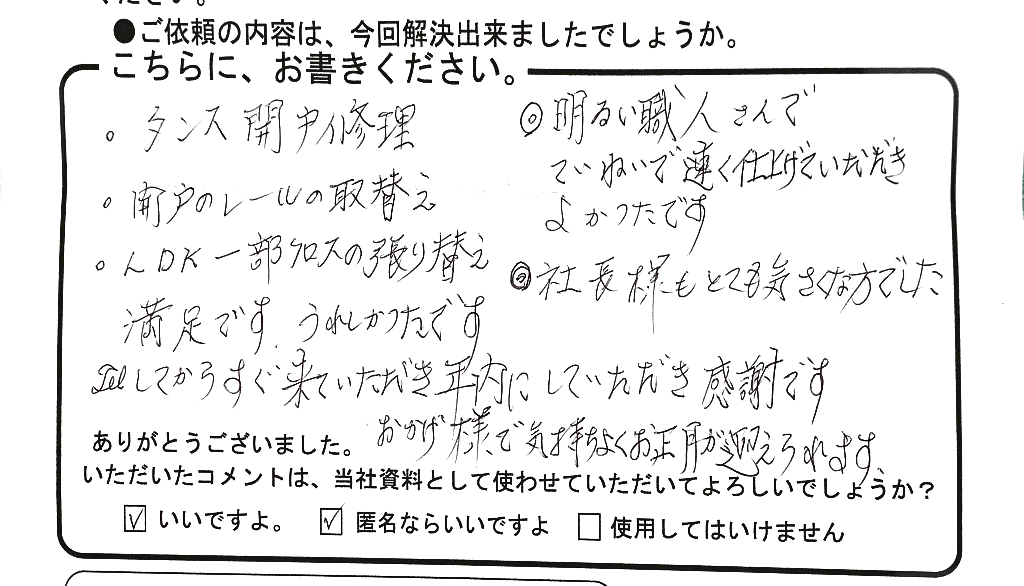 ください。
●ご依頼の内容は、今回解決出来ましたでしょうか。
こちらに、お書きください。
。タンス開戸修理
。開戸のレールの取替え
。LDK一部クロスの張り替え
満足です。うれしかったです
◎明るい職人さんで
ていねいで速く仕上げていただき
よかったです
◎社長様もとても気さくな方でした
Telしてからすぐ来ていただき年内にしていただき感謝です
おかげ様で気持ちよくお正月が迎えられます
ありがとうございました。
いただいたコメントは、当社資料として使わせていただいてよろしいでしょうか？
☑ いいですよ。 ☑ 匿名ならいいですよ □ 使用してはいけません